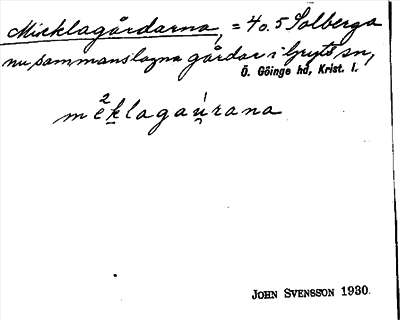 Micklagårdarna, = 4 o. 5 Solberga
nu sammanslagna gårdar i Gryts sn,
Ö. Göinge hd, Krist. l.
me²klagaúrana
JOHN SVENSSON 1930.